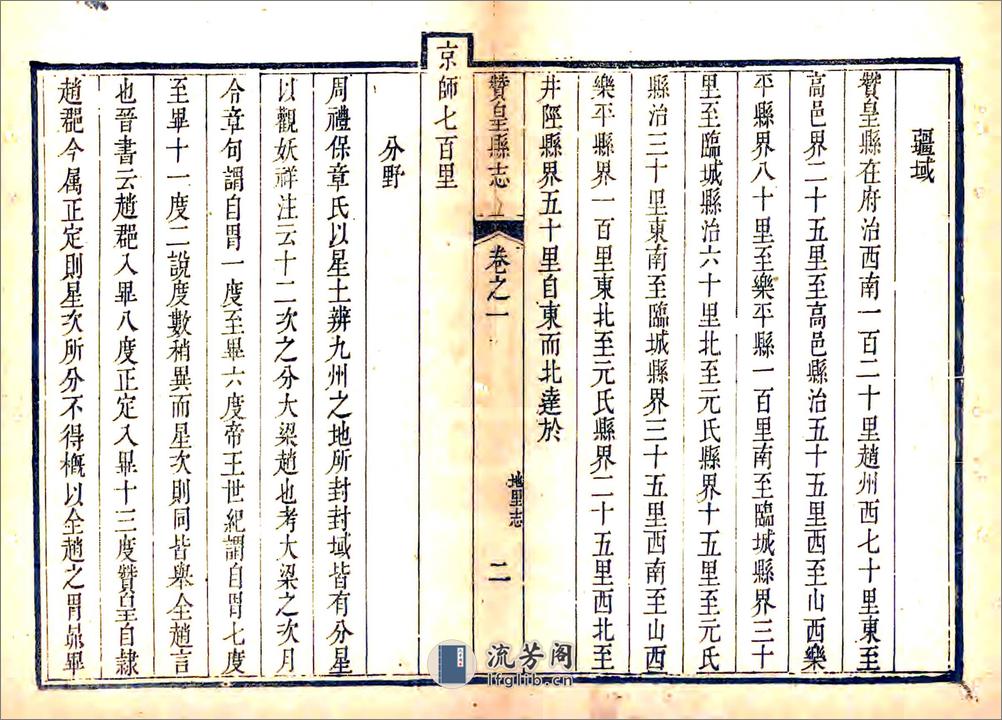 疆域
贊皇縣在府治西南一百二十里趙州西七十里東至
高邑界二十五里至高邑縣治五十五里西至山西樂
平縣界八十里至樂平縣一百里南至臨城縣界三十
里至臨城縣治六十里北至元氏縣界十五里至元氏
縣治三十里東南至臨城縣界三十五里西南至山西
樂平縣界一百里東北至元氏縣界二十五里西北至
井陘縣界五十里自東而北達於
贊皇縣志 卷之一 地里志 二
京師七百里
分野
周禮保章氏以星土辨九州之地所封封域皆有分星
以觀妖祥注云十二次之分大梁趙也考大梁之次月
令章句謂自胃一度至畢六度帝王世紀謂自胃七度
至畢十一度二說度數稍異而星次則同皆舉全趙言
也晉書云趙郡入畢八度正定入畢十三度贊皇自隸
趙郡今属正定則星次所分不得概以全趙之胃昴畢
流芳阁
lfglib.cn